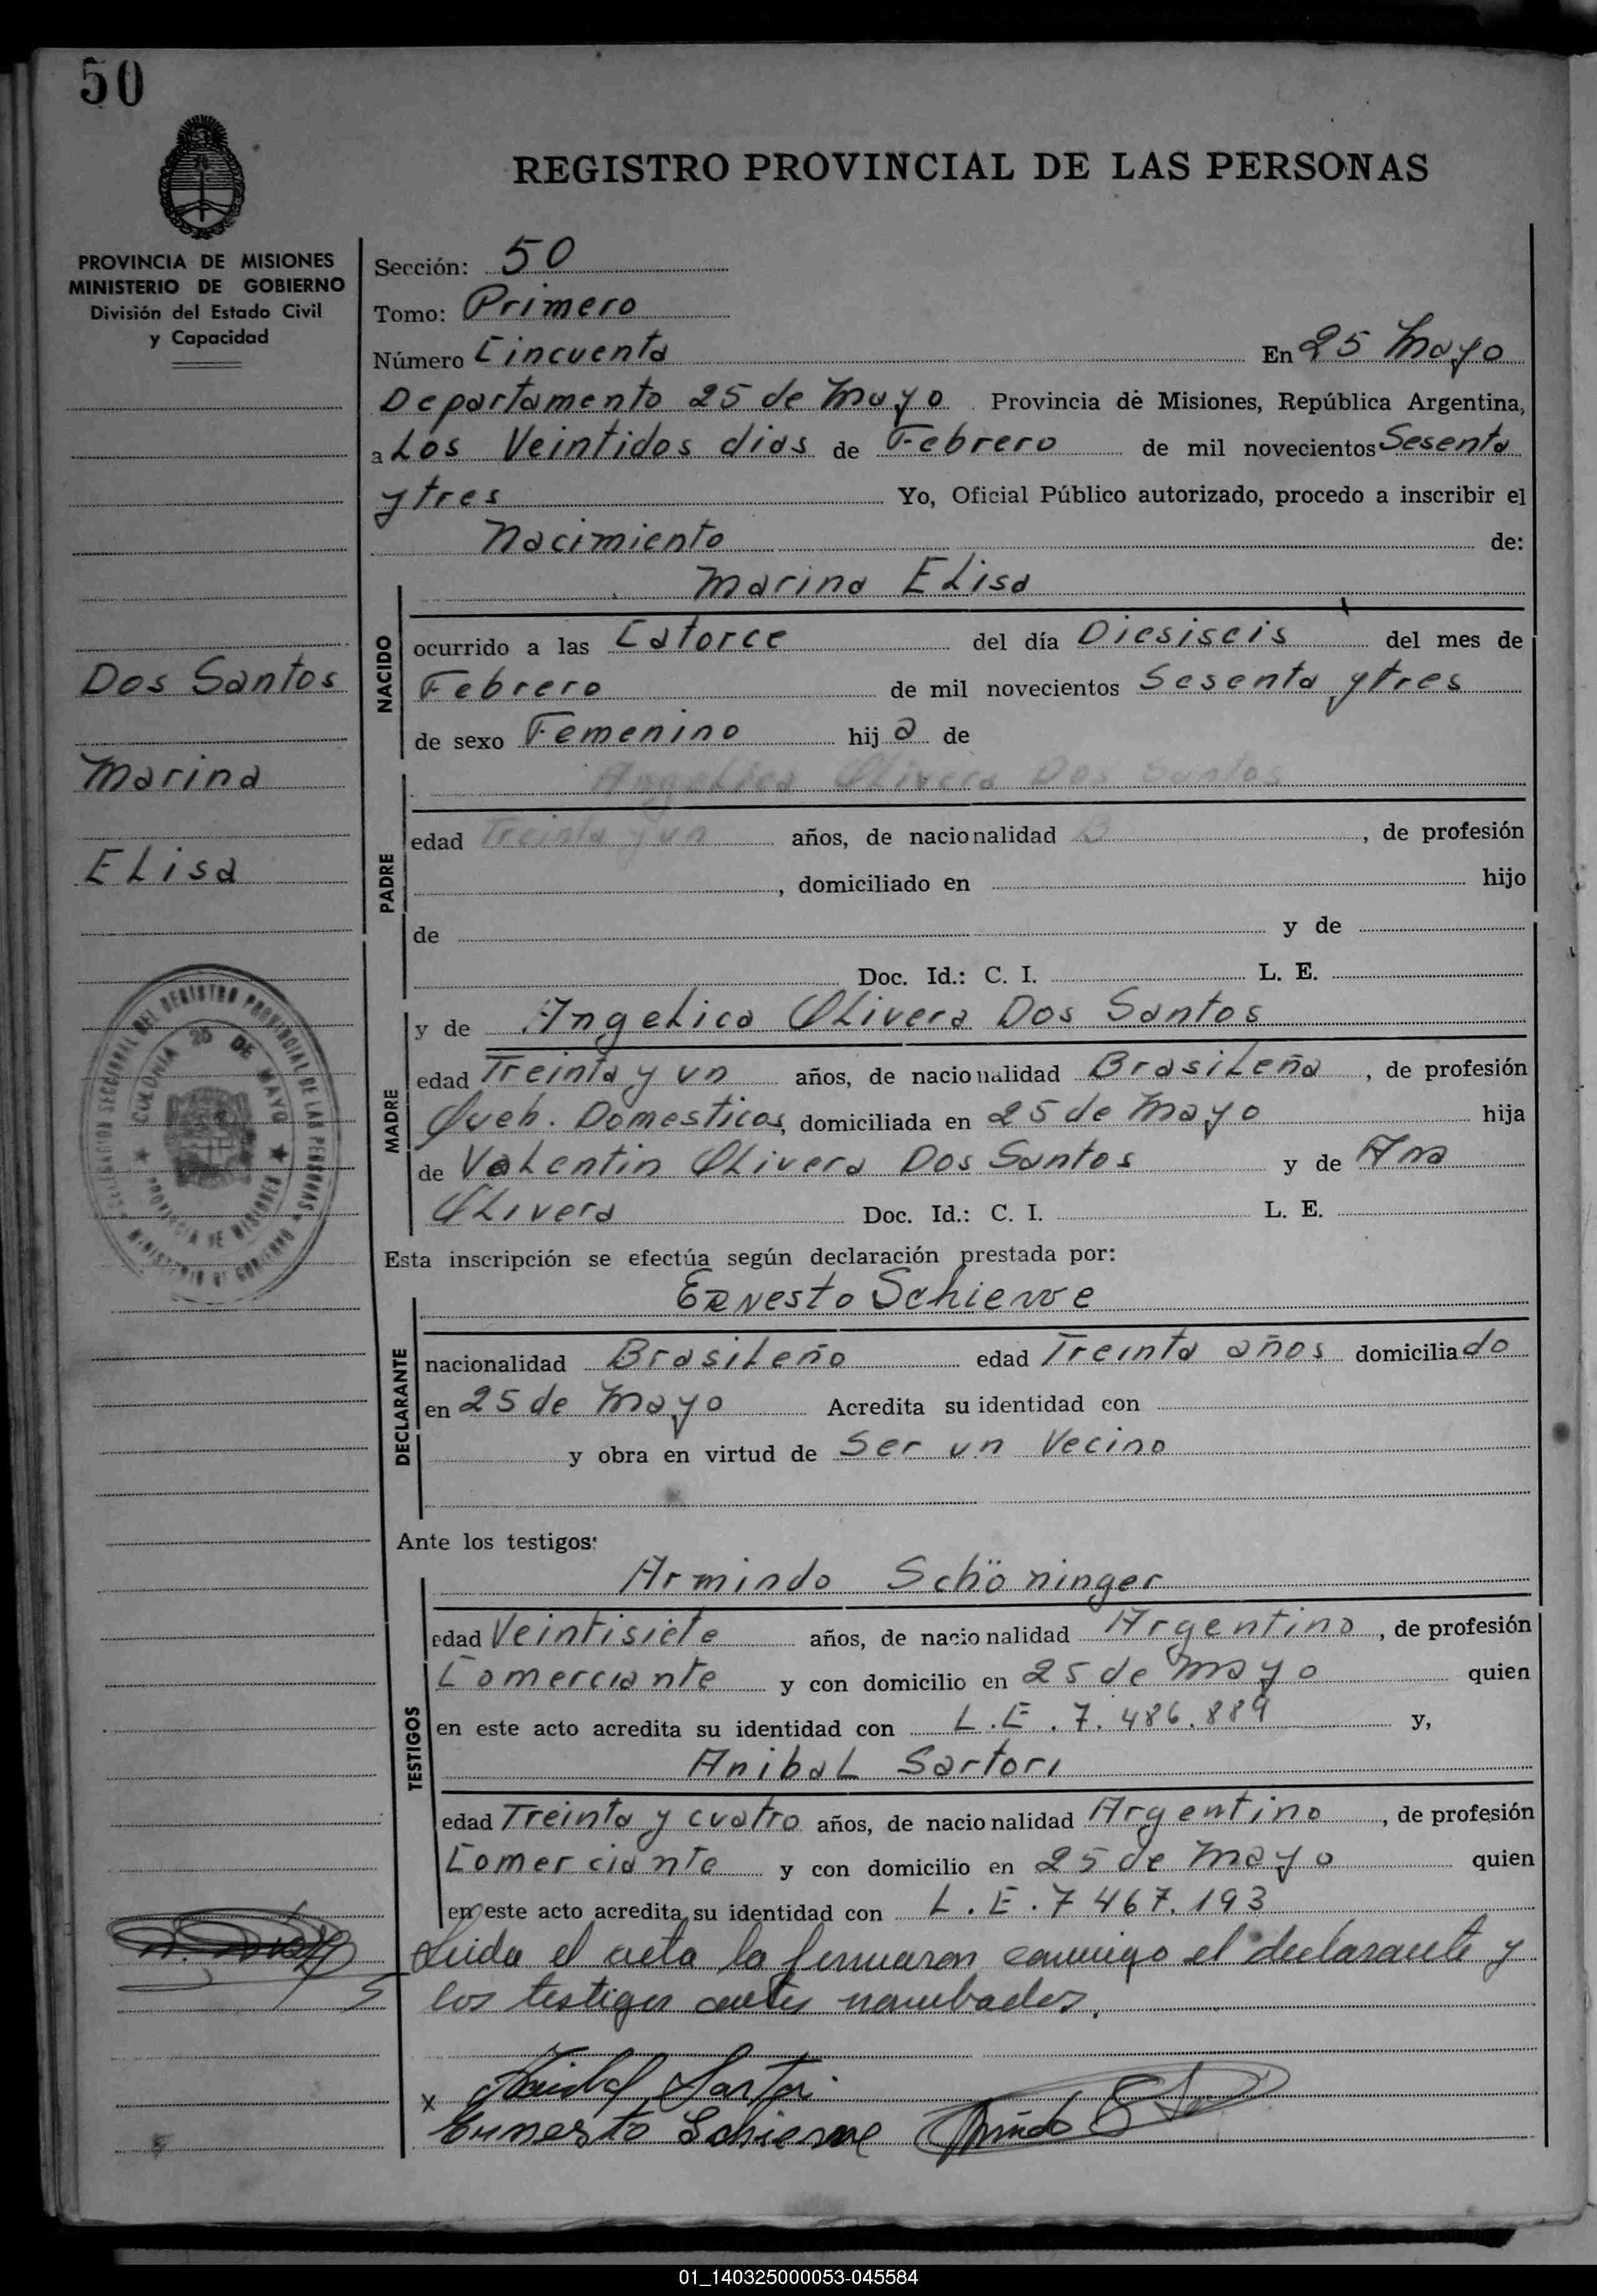 50
REGISTRO PROVINCIAL DE LAS PERSONAS
PROVINCIA DE MISIONES
MINISTERIO DE GOBIERNO
División del Estado Civil
y Capacidad
Dos Santos
Marina
ELisa
DELEGACION SECCIONAL DEL REGISTRO PROVINCIAL DE LAS PERSONAS
COLONIA 25 DE MAYO
PROVINCIA DE MISIONES
MINISTERIO DE GOBIERNO
Sección: 50
Tomo: Primero
Número Cincuenta En 25 Mayo
Departamento 25 de Mayo Provincia de Misiones, República Argentina,
a Los Veintidos dias de Febrero de mil novecientos Sesenta
y tres Yo, Oficial Público autorizado, procedo a inscribir el
Nacimiento de:
Marina ELisa
NACIDO
ocurrido a las Catorce del día Diesiseis del mes de
Febrero de mil novecientos Sesenta y tres
de sexo Femenino hija de
Angelica Olivera Dos Santos
PADRE
edad Treinta y un años, de nacionalidad B , de profesión
, domiciliado en hijo
de y de
Doc. Id.: C. I. L. E.
MADRE
y de AngeLica OLivera Dos Santos
edad Treinta y un años, de nacionalidad BrasiLeña , de profesión
Queh. Domesticos, domiciliada en 25 de Mayo hija
de VaLentin OLivera Dos Santos y de Ana
OLivera Doc. Id.: C. I. L. E.
Esta inscripción se efectúa según declaración prestada por:
ERNesto Schierve
DECLARANTE
nacionalidad BrasiLeño edad Treinta años domiciliado
en 25 de Mayo Acredita su identidad con
y obra en virtud de Ser un Vecino
Ante los testigos:
Armindo Schöninger
TESTIGOS
edad Veintisiete años, de nacionalidad Argentino, de profesión
Comerciante y con domicilio en 25 de Mayo quien
en este acto acredita su identidad con L.E. 7.486.889 y,
AnibaL Sartori
edad Treinta y cuatro años, de nacionalidad Argentino, de profesión
Comerciante y con domicilio en 25 de Mayo quien
en este acto acredita su identidad con L.E. 7 467.193
Leida el acta la firmaron conmigo el declarante y
los testigos antes nombados.
x Anibal Sartori
Ernesto Schierve
01_140325000053-045584